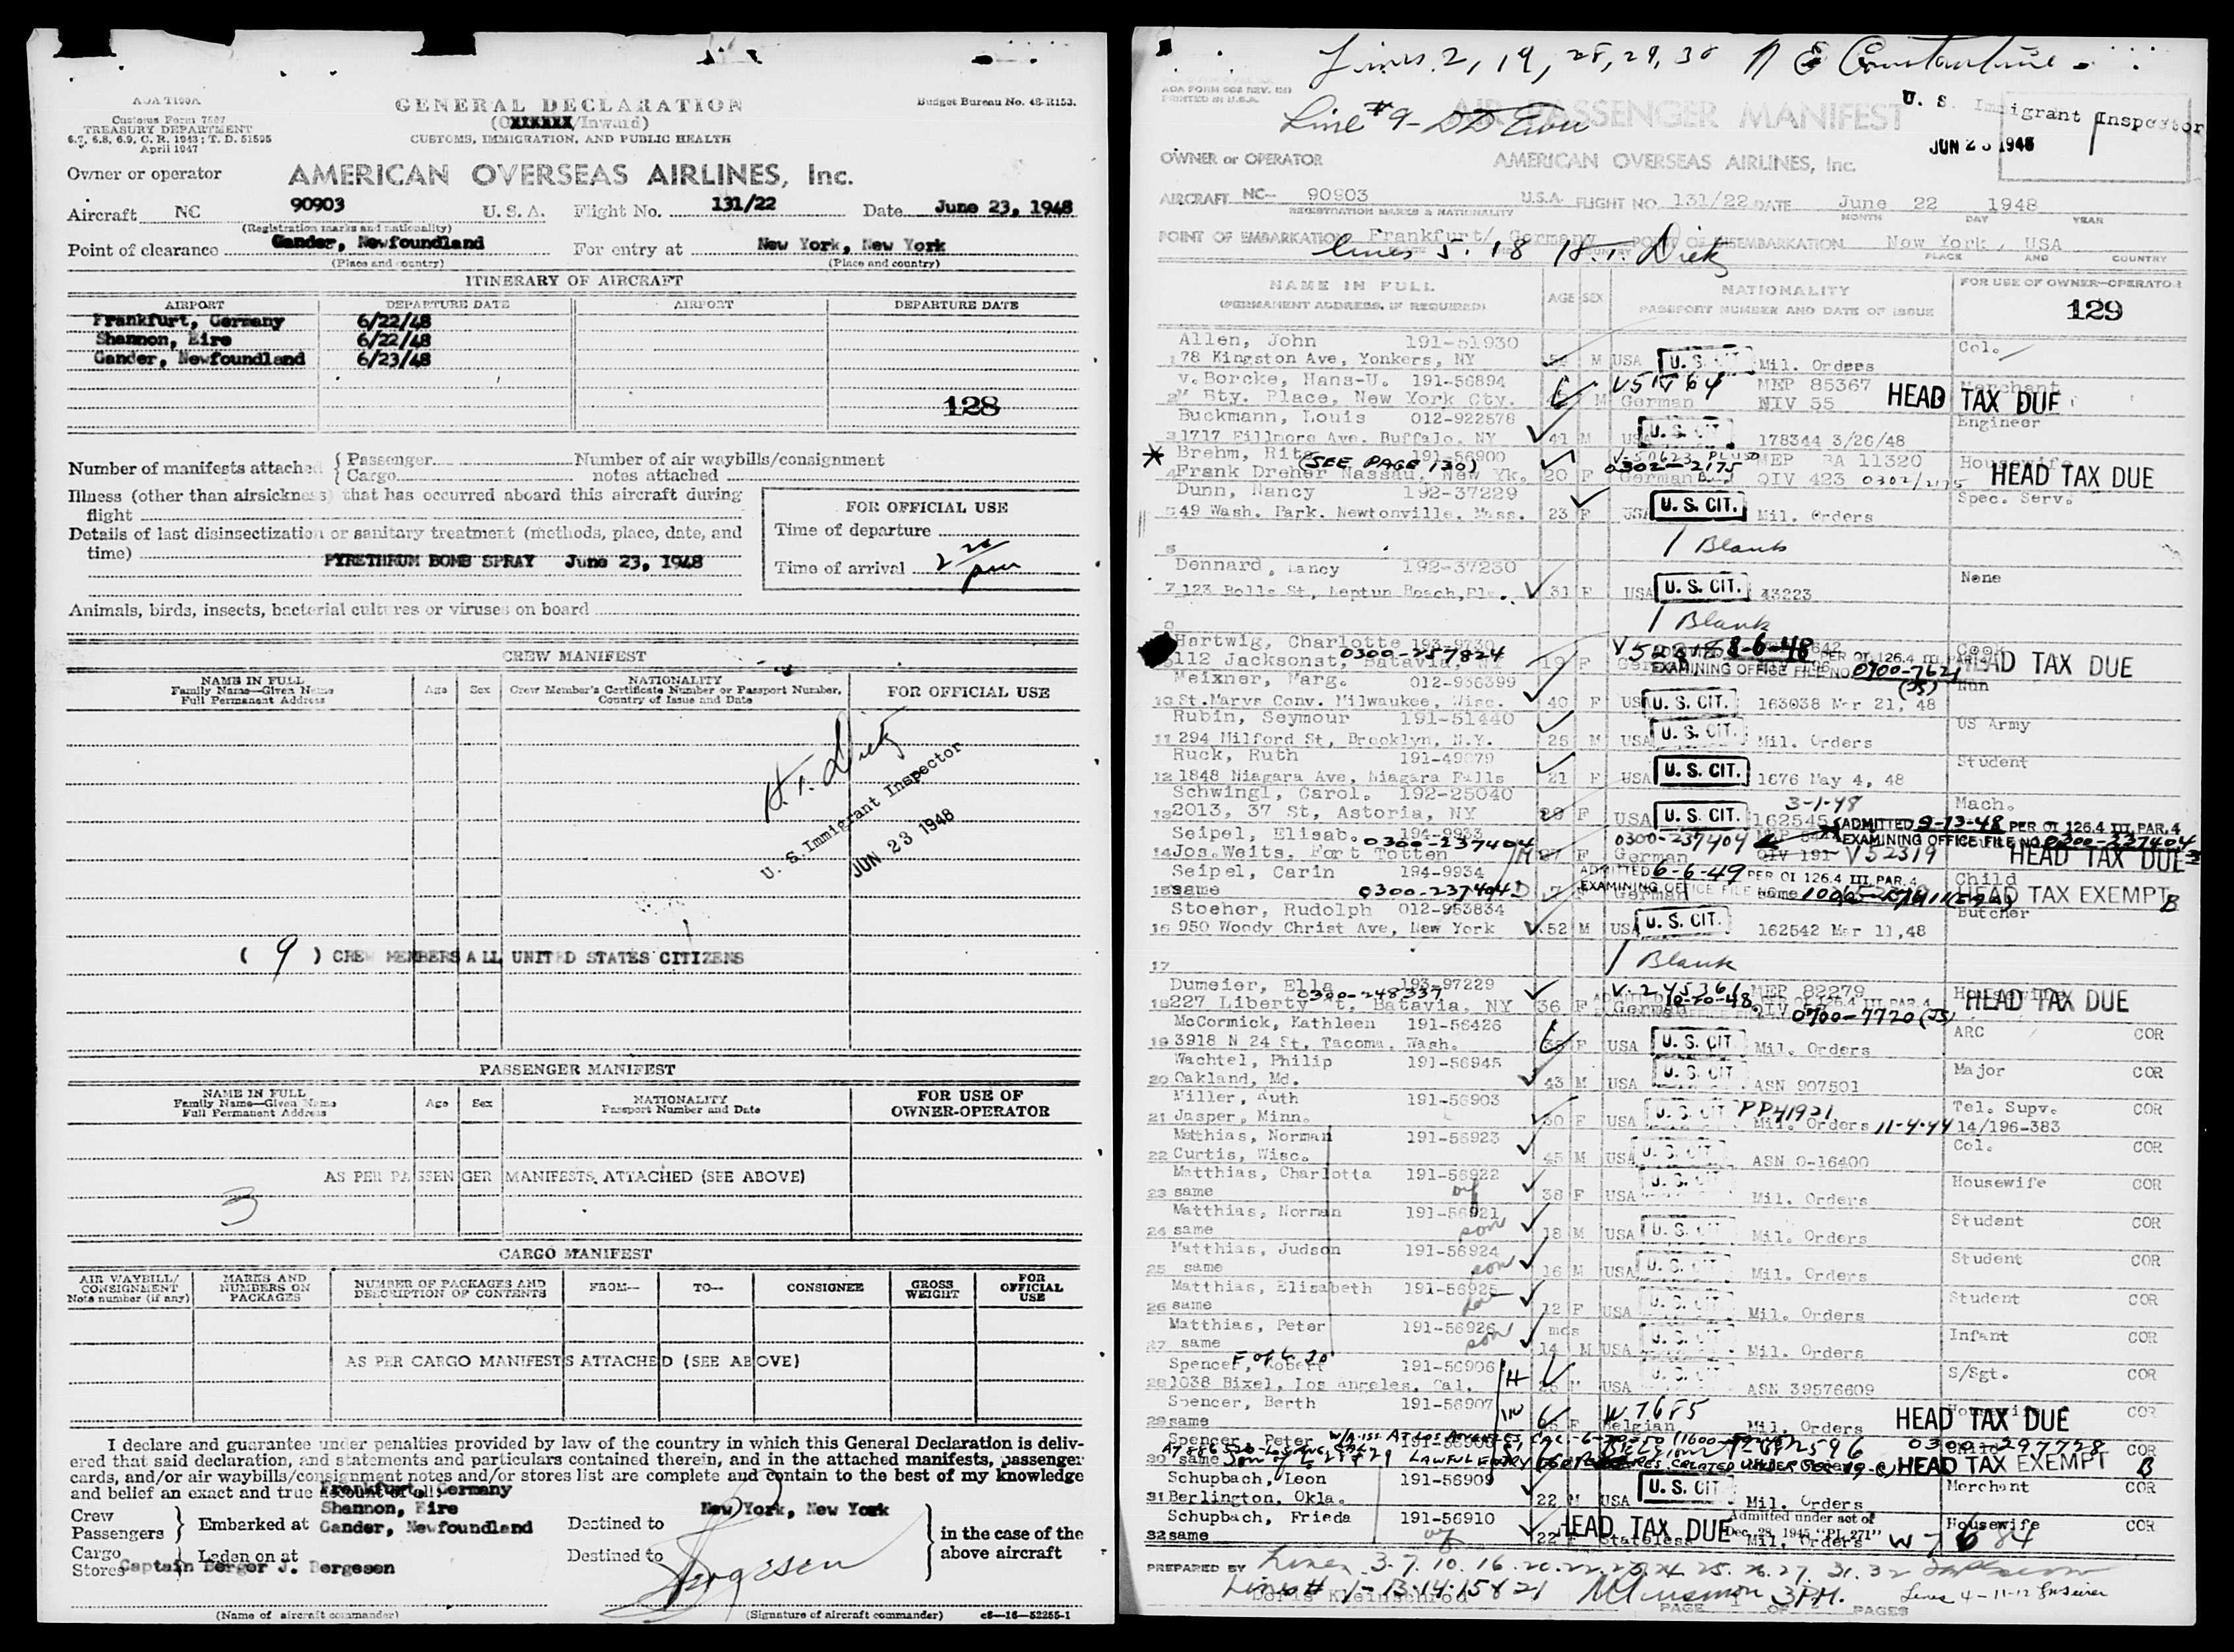 AOA T100A
Customs Form 7507
TREASURY DEPARTMENT
6.7, 6.8, 6.9, C. R. 1943; T. D. 51595
April 1947
GENERAL DECLARATION
/Inward)
CUSTOMS, IMMIGRATION, AND PUBLIC HEALTH
Budget Bureau No. 48-R153.
Owner or operator AMERICAN OVERSEAS AIRLINES, Inc.
Aircraft NC 90903 U. S. A. Flight No. 131/22 Date June 23, 1948
(Registration marks and nationality)
Point of clearance Gander, Newfoundland For entry at New York, New York
(Place and country) (Place and country)
ITINERARY OF AIRCRAFT
AIRPORT DEPARTURE DATE AIRPORT DEPARTURE DATE
Frankfurt, Germany 6/22/48
Shannon, Eire 6/22/48
Gander, Newfoundland 6/23/48
128
Number of manifests attached { Passenger Number of air waybills/consignment
{ Cargo notes attached
Illness (other than airsickness) that has occurred aboard this aircraft during
flight
Details of last disinsectization or sanitary treatment (methods, place, date, and
time) PYRETHRUM BOMB SPRAY June 23, 1948
FOR OFFICIAL USE
Time of departure
Time of arrival
Animals, birds, insects, bacterial cultures or viruses on board
CREW MANIFEST
NAME IN FULL
Family Name—Given Name
Full Permanent Address
Age Sex
NATIONALITY
Crew Member's Certificate Number or Passport Number,
Country of Issue and Date
FOR OFFICIAL USE
H. F. Dietz
U. S. Immigrant Inspector
JUN 23 1948
( 9 ) CREW MEMBERS ALL UNITED STATES CITIZENS
PASSENGER MANIFEST
NAME IN FULL
Family Name—Given Name
Full Permanent Address
Age Sex
NATIONALITY
Passport Number and Date
FOR USE OF
OWNER-OPERATOR
AS PER PASSENGER MANIFESTS ATTACHED (SEE ABOVE)
3
CARGO MANIFEST
AIR WAYBILL/
CONSIGNMENT
Note number (if any)
MARKS AND
NUMBERS ON
PACKAGES
NUMBER OF PACKAGES AND
DESCRIPTION OF CONTENTS
FROM— TO— CONSIGNEE
GROSS
WEIGHT
FOR
OFFICIAL
USE
AS PER CARGO MANIFESTS ATTACHED (SEE ABOVE)
I declare and guarantee under penalties provided by law of the country in which this General Declaration is deliv-
ered that said declaration, and statements and particulars contained therein, and in the attached manifests, passenger
cards, and/or air waybills/consignment notes and/or stores list are complete and contain to the best of my knowledge
and belief an exact and true account of all:
Crew
Passengers } Embarked at Frankfurt, Germany
Shannon, Eire
Gander, Newfoundland
Destined to New York, New York
Cargo
Stores } Laden on at
Destined to
in the case of the
above aircraft
Captain Berger J. Bergesen
Bergesen
(Name of aircraft commander) (Signature of aircraft commander) c8—16—52255-1
Lines 2, 19, 28, 29, 30 N E Constantine
Line #9 - DD
AOA FORM
PRINTED IN U.S.A.
AIR PASSENGER MANIFEST
U. S. Immigrant Inspector
JUN 23 1948
OWNER or OPERATOR AMERICAN OVERSEAS AIRLINES, Inc.
AIRCRAFT NC-- 90903 U.S.A. FLIGHT NO. 131/22 DATE June 22 1948
REGISTRATION MARKS & NATIONALITY MONTH DAY YEAR
POINT OF EMBARKATION Frankfurt/ Germany POINT OF DISEMBARKATION New York, USA
PLACE AND COUNTRY
lines 5. 18 H. F. Dietz
NAME IN FULL
(PERMANENT ADDRESS, IF REQUIRED)
AGE SEX
NATIONALITY
PASSPORT NUMBER AND DATE OF ISSUE
FOR USE OF OWNER-OPERATOR
129
Allen, John 191-51930 Col.
1 78 Kingston Ave, Yonkers, NY 54 M USA U. S. CIT. Mil. Orders
v. Borcke, Hans-U. 191-56894 MEP 85367 Merchant
2 Bty. Place, New York Cty. M German NIV 55 HEAD TAX DUE
Buckmann, Louis 012-922578 Engineer
3 1717 Fillmore Ave. Buffalo. NY 41 M USA U. S. CIT. 178344 3/26/48
* Brehm, Rita 191-56900 (SEE PAGE 130) 0302-2175 MEP BA 11320 Housewife
4 Frank Dreher Nassau, New Yk. 20 F German QIV 423 0302/2175 HEAD TAX DUE
Dunn, Nancy 192-37229 Spec. Serv.
5 49 Wash. Park. Newtonville, Mass. 23 F USA U. S. CIT. Mil. Orders
6 1 Blank
Dennard, Nancy 192-37230 None
7 123 Bolls St, Neptun Beach, Fl. 31 F USA U. S. CIT. 43223
8 1 Blank
Hartwig, Charlotte 193-9730 8-6-48 PER OI 126.4 III PAR. 4 Cook
9 112 Jacksonst, Batavia, NY 0300-257824 19 F German EXAMINING OFFICE FILE NO. 0700-7621 (JS) HEAD TAX DUE
Meixner, Marg. 012-936399 Nun
10 St. Marys Conv. Milwaukee, Wisc. 40 F USA U. S. CIT. 163038 Mar 21, 48
Rubin, Seymour 191-51440 US Army
11 294 Milford St, Brooklyn, N.Y. 25 M USA U. S. CIT. Mil. Orders
Ruck, Ruth 191-49079 Student
12 1848 Niagara Ave, Niagara Falls 21 F USA U. S. CIT. 1676 May 4, 48
Schwingl, Carol. 192-25040 3-1-48 Mach.
13 2013, 37 St, Astoria, NY 20 F USA U. S. CIT. 162545
Seipel, Elisab. 194-9933 0300-237404 ADMITTED 9-13-48 PER OI 126.4 III, PAR. 4
14 Jos. Weits, Fort Totten 27 F German QIV 191 V 52319 EXAMINING OFFICE FILE NO. 0300-237404 HEAD TAX DUE
Seipel, Carin 194-9934 ADMITTED 6-6-49 PER OI 126.4 III, PAR. 4 Child
15 same 0300-237404 7 F German EXAMINING OFFICE FILE same HEAD TAX EXEMPT B
Stoeher, Rudolph 012-953834 Butcher
16 950 Woody Christ Ave, New York 52 M USA U. S. CIT. 162542 Mar 11, 48
17 1 Blank
Dumeier, Ella 193-97229 V-245361 MEP 82279 Housewife
18 227 Liberty St, Batavia, NY 0300-248337 36 F German ADMITTED 10-20-48 PER OI 126.4 III PAR. 4 QIV 0700-7720 (JS) HEAD TAX DUE
McCormick, Kathleen 191-56426 ARC COR
19 3918 N 24 St, Tacoma, Wash. F USA U. S. CIT. Mil. Orders
Wachtel, Philip 191-56945 Major COR
20 Oakland, Md. 43 M USA U. S. CIT. ASN 907501
Miller, Ruth 191-56903 PP41921 Tel. Supv. COR
21 Jasper, Minn. 30 F USA U. S. CIT. Mil. Orders 11-4-44 14/196-383
Matthias, Norman 191-56923 Col. COR
22 Curtis, Wisc. 45 M USA U. S. CIT. ASN O-16400
Matthias, Charlotta 191-56922 Housewife COR
23 same 38 F USA U. S. CIT. Mil. Orders
Matthias, Norman 191-56921 Student COR
24 same son 18 M USA U. S. CIT. Mil. Orders
Matthias, Judson 191-56924 Student COR
25 same son 16 M USA U. S. CIT. Mil. Orders
Matthias, Elizabeth 191-56925 Student COR
26 same dau 12 F USA U. S. CIT. Mil. Orders
Matthias, Peter 191-56926 mos Infant COR
27 same son 14 M USA U. S. CIT. Mil. Orders
Spencer, Robert 191-56906 S/Sgt. COR
28 1038 Bixel, Los Angeles, Cal. H M USA U. S. CIT. ASN 39576609
Spencer, Berth 191-56907 W 7685 Housewife COR
29 same W F Belgian Mil. Orders HEAD TAX DUE
Spencer, Peter 0300-297728 COR
30 same HEAD TAX EXEMPT B
Schupbach, Leon 191-56909 Merchant COR
31 Berlington, Okla. 22 M USA U. S. CIT. Mil. Orders
Schupbach, Frieda 191-56910 Admitted under act of Housewife COR
32 same 22 F Stateless HEAD TAX DUE Dec. 28, 1945 "PL 271" Mil. Orders
PREPARED BY Lines 3. 7. 10. 16. 20. 22. 23. 24. 25. 26. 27. 31. 32
Lines # 1-13-14-15 & 21
Doris Kleinschrod
Lines 4-11-12
PAGE 1 OF PAGES